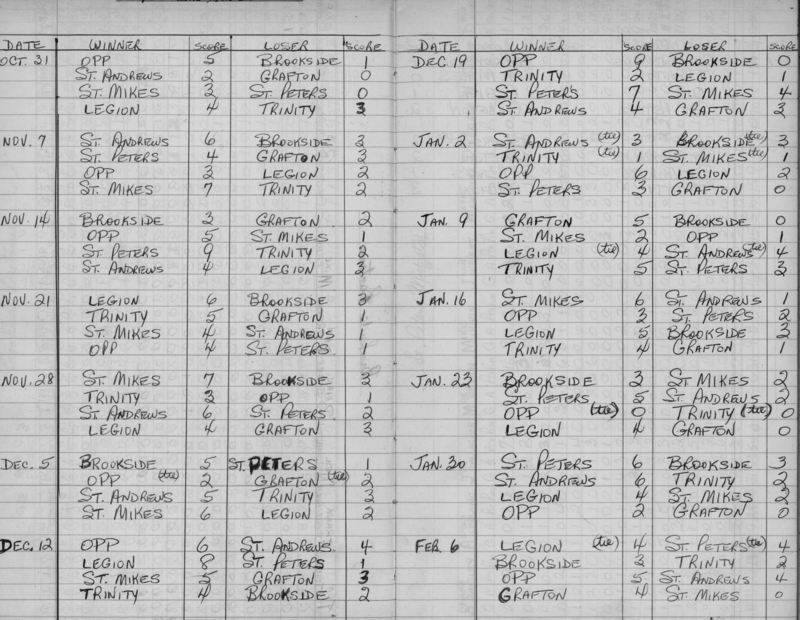 DATE WINNER SCORE LOSER SCORE
OCT. 31 OPP 5 BROOKSIDE 1
ST. ANDREWS 2 GRAFTON 0
ST. MIKES 3 ST. PETERS 0
LEGION 4 TRINITY 3
NOV. 7 ST. ANDREWS 6 BROOKSIDE 3
ST. PETERS 4 GRAFTON 3
OPP 3 LEGION 2
ST. MIKES 7 TRINITY 2
NOV. 14 BROOKSIDE 3 GRAFTON 2
OPP 5 ST. MIKES 1
ST. PETERS 9 TRINITY 2
ST. ANDREWS 4 LEGION 3
NOV. 21 LEGION 6 BROOKSIDE 3
TRINITY 5 GRAFTON 1
ST. MIKES 4 ST. ANDREWS 1
OPP 4 ST. PETERS 1
NOV. 28 ST. MIKES 7 BROOKSIDE 3
TRINITY 3 OPP 1
ST. ANDREWS 6 ST. PETERS 2
LEGION 4 GRAFTON 3
DEC. 5 BROOKSIDE 5 ST. PETERS 1
OPP (tie) 2 GRAFTON (tie) 2
ST. ANDREWS 5 TRINITY 3
ST. MIKES 6 LEGION 2
DEC. 12 OPP 6 ST. ANDREWS 4
LEGION 8 ST. PETERS 1
ST. MIKES 5 GRAFTON 3
TRINITY 4 BROOKSIDE 2
DATE WINNER SCORE LOSER SCORE
DEC. 19 OPP 9 BROOKSIDE 0
TRINITY 2 LEGION 1
ST. PETERS 7 ST. MIKES 4
ST. ANDREWS 4 GRAFTON 3
JAN. 2 ST. ANDREWS (tie) 3 BROOKSIDE (tie) 3
TRINITY (tie) 1 ST. MIKES (tie) 1
OPP 6 LEGION 2
ST. PETERS 3 GRAFTON 0
JAN. 9 GRAFTON 5 BROOKSIDE 0
ST. MIKES 2 OPP 1
LEGION (tie) 4 ST. ANDREWS (tie) 4
TRINITY 5 ST. PETERS 3
JAN. 16 ST. MIKES 6 ST. ANDREWS 1
OPP 3 ST. PETERS 2
LEGION 5 BROOKSIDE 3
TRINITY 4 GRAFTON 1
JAN. 23 BROOKSIDE 3 ST. MIKES 2
ST. PETERS 5 ST. ANDREWS 2
OPP (tie) 0 TRINITY (tie) 0
LEGION 4 GRAFTON 0
JAN. 30 ST. PETERS 6 BROOKSIDE 3
ST. ANDREWS 6 TRINITY 2
LEGION 4 ST. MIKES 2
OPP 2 GRAFTON 0
FEB. 6 LEGION (tie) 4 ST. PETERS (tie) 4
BROOKSIDE 3 TRINITY 2
OPP 5 ST. ANDREWS 4
GRAFTON 4 ST. MIKES 0